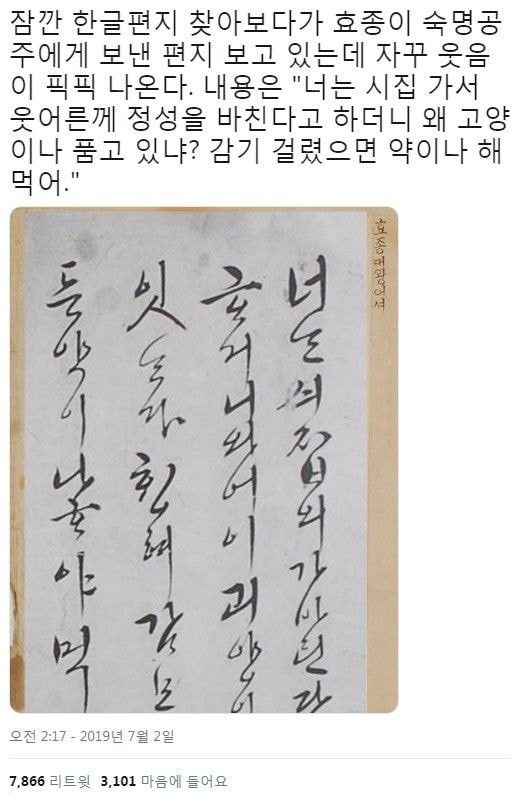 잠깐 한글편지 찾아보다가 효종이 숙명공
주에게 보낸 편지 보고 있는데 자꾸 웃음
이 픽픽 나온다. 내용은 "너는 시집 가서
웃어른께 정성을 바친다고 하더니 왜 고양
이나 품고 있냐? 감기 걸렸으면 약이나 해
먹어."
효종대왕어셔
너ᄂᆞᆫ 싀집의 가 바틴다
ᄒᆞ거니와 어이 괴양이
잇ᄂᆞᆫ다 ᄒᆡᆼ혀 감모
든 약이나 ᄒᆞ야 먹
오전 2:17 - 2019년 7월 2일
7,866 리트윗 3,101 마음에 들어요